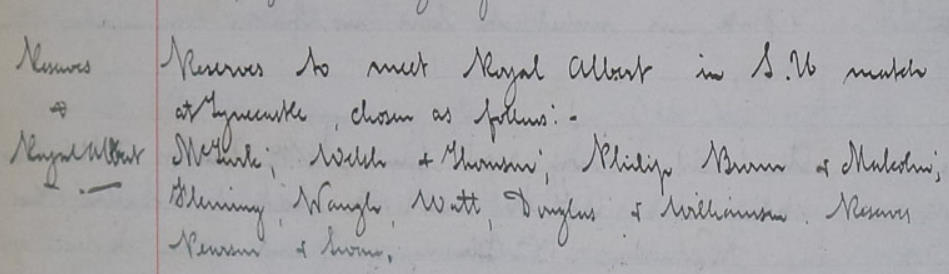 Reserves
&
Royal Albert
Reserves to meet Royal Albert in S.U match
at Tynecastle, chosen as follows:-
McGurk; Welch & Thomson; Philip Brown & Malcolm;
Fleming, Waugh, Watt, Douglas & Williamson. Reserves
Pearson &